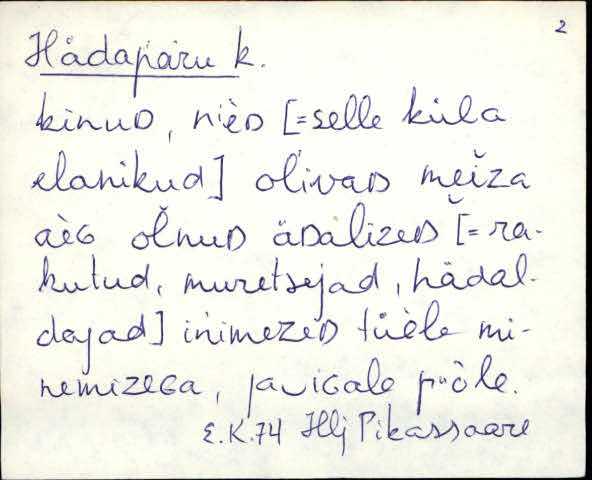 2
Hädapäru k.
kinuD, nièD [=selle küla
elanikud] olivaD meìza
aèG olnuD äDalizeD [=ra-
kutud, muretsejad, hädal-
dajad] inimezeD tüèle mi-
nemizeGa, ja iGale pu̮òle.
E.K.74 Hlj Pikassaare